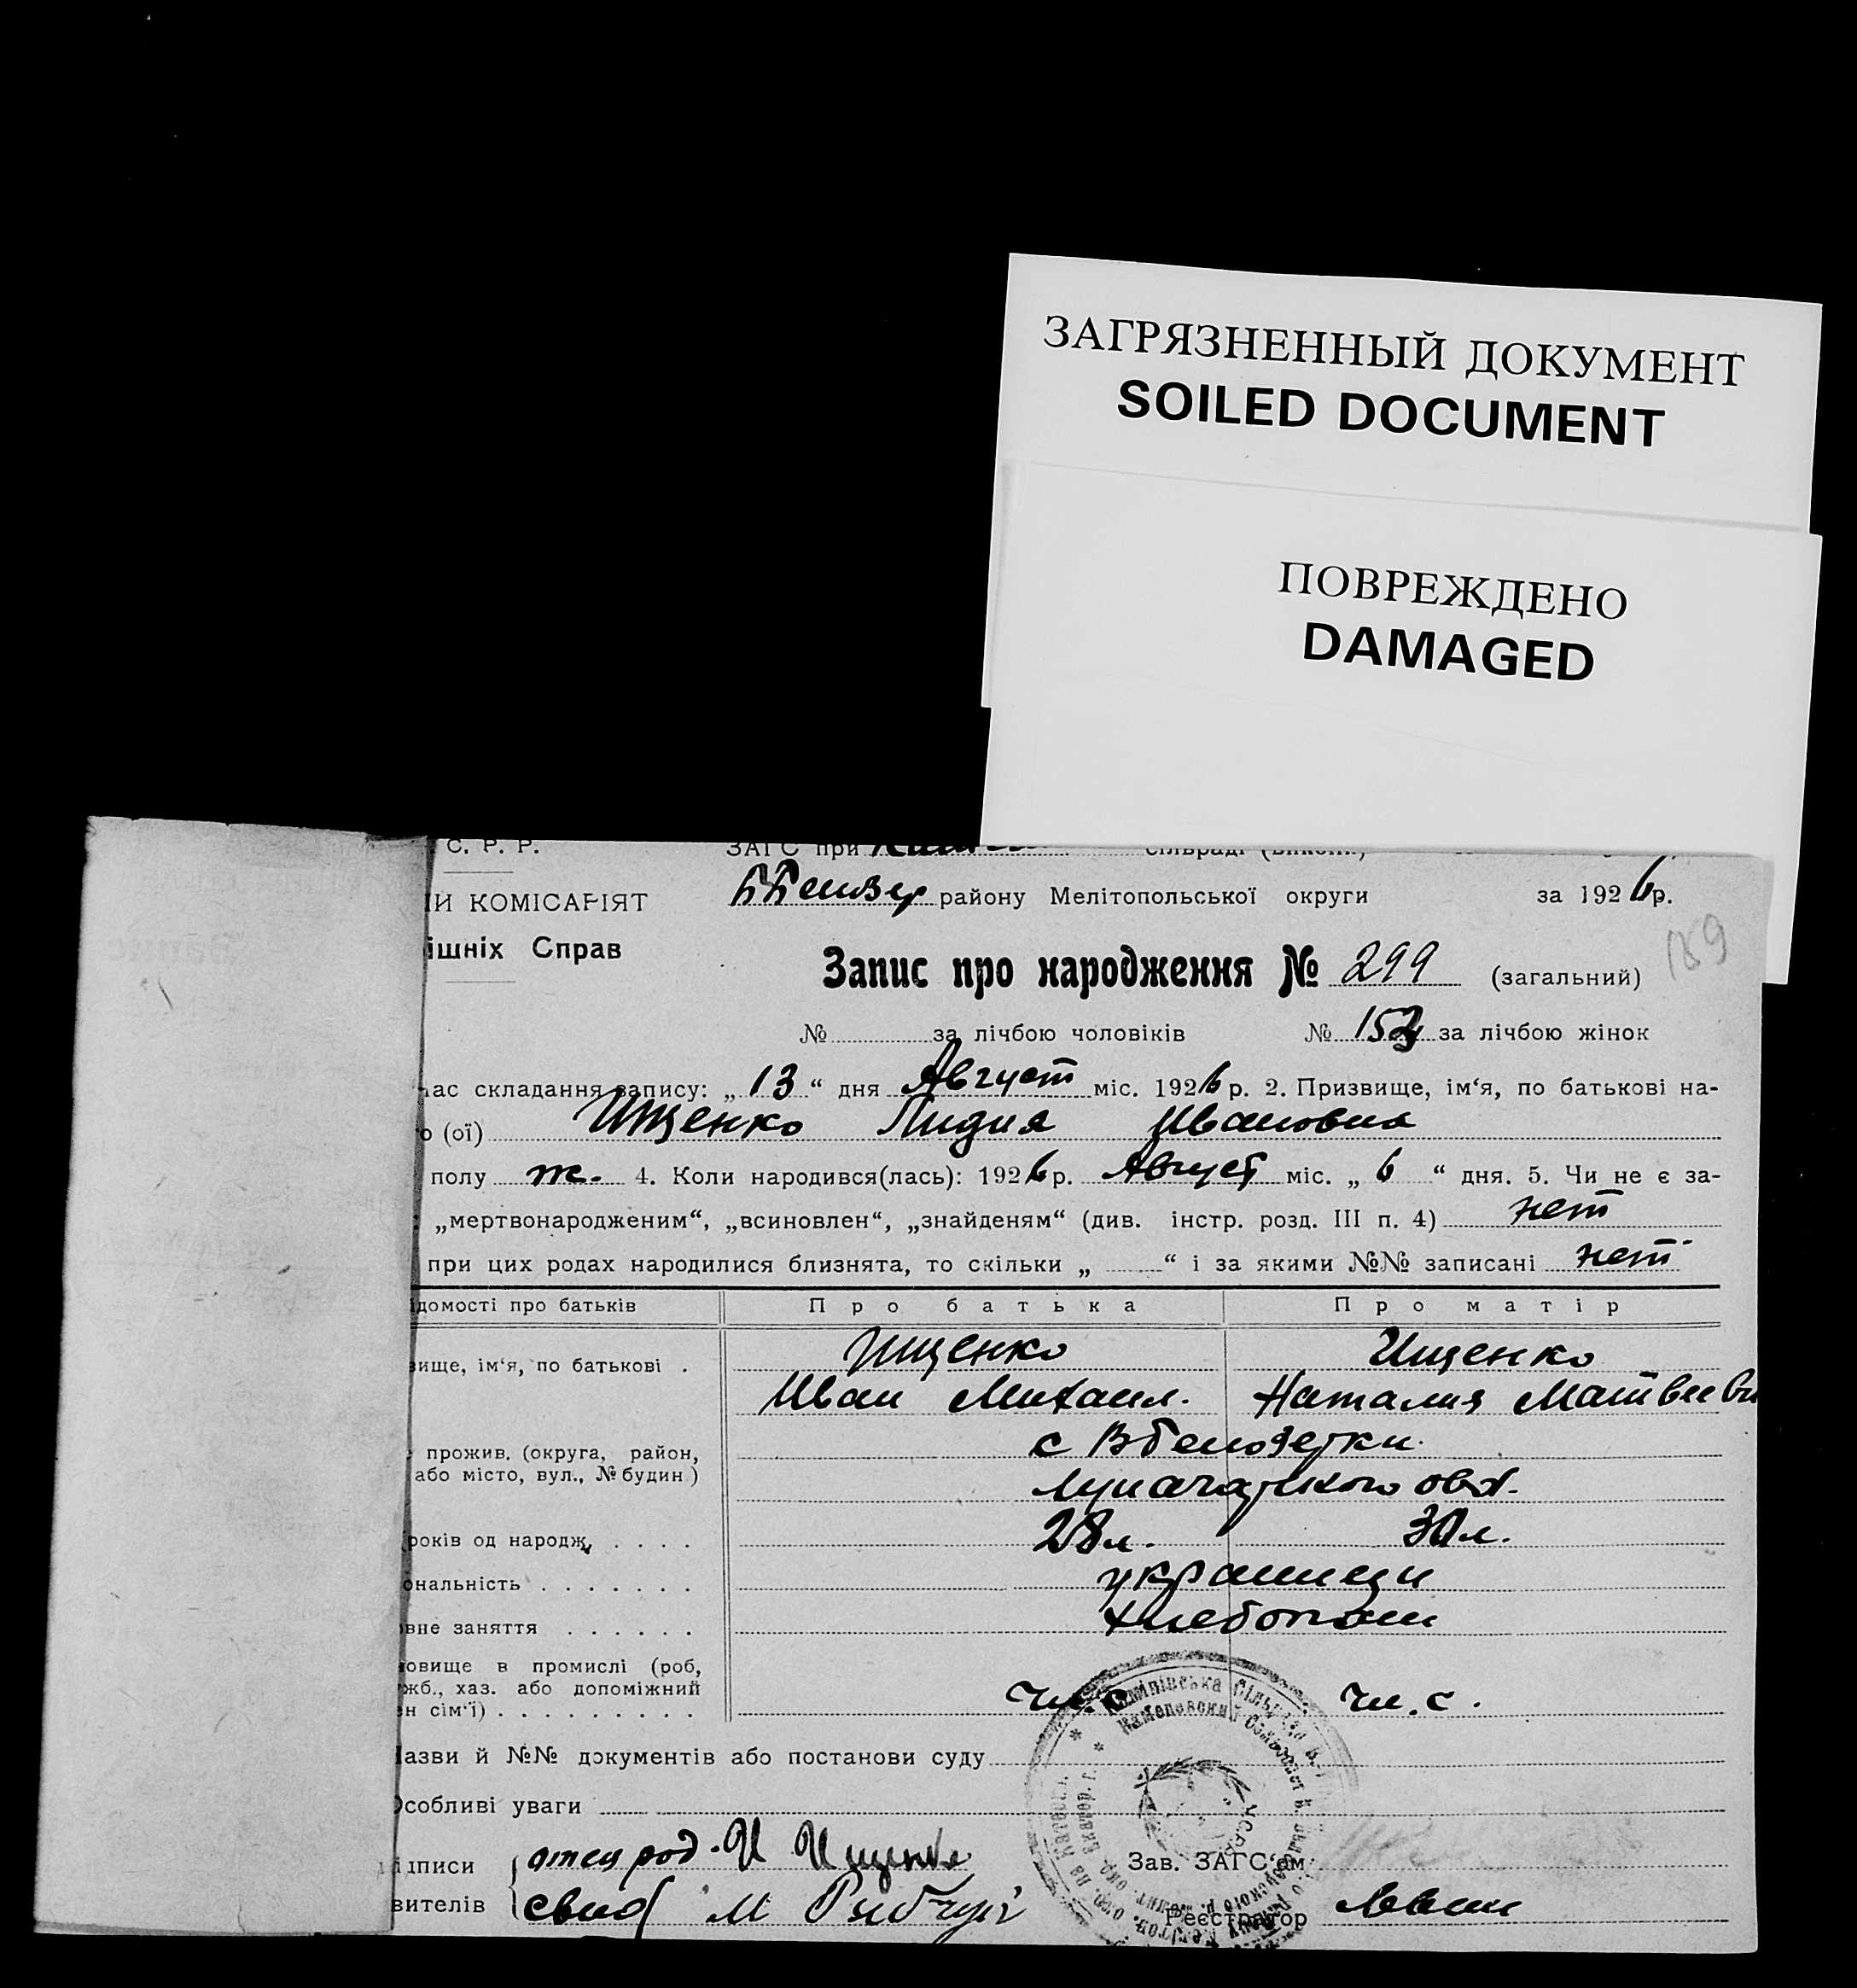 ЗАГРЯЗНЕННЫЙ ДОКУМЕНТ
SOILED DOCUMENT
ПОВРЕЖДЕНО
DAMAGED
С. Р. Р. ЗАГС при
району Мелітопольської округи за 1926р.
КОМІСАРІЯТ
ішніх Справ
189
Запис про народження № 299 (загальний)
№ за лічбою чоловіків № 153 за лічбою жінок
ас складання запису: „13“ дня Август міс. 1926 р. 2. Призвище, ім'я, по батькові на-
о (ої) Ищенко Лидия Ивановна
полу ж. 4. Коли народився(лась): 1926 р. Август міс. „ 6 “ дня. 5. Чи не є за-
„мертвонародженим“, „всиновлен“, „знайденям“ (див. інстр. розд. III п. 4) нет
при цих родах народилися близнята, то скільки „ “ і за якими №№ записані нет
ідомості про батьків Про батька Про матір
вище, ім'я, по батькові . Ищенко Ищенко
Иван Михаил. Наталия Матвеевн
прожив. (округа, район, с Вбелозерки
або місто, вул., № будин)
років од народж. . . . . 28 л. 30 л.
ональність . . . . . . . украинцы
вне заняття . . . . . . хлебопаш
овище в промислі (роб,
жб., хаз. або допоміжний
ен сім'ї) . . . . . . . . . чл. с чл. с.
азви й №№ документів або постанови суду
Особливі уваги
ідписи отец род. И Ищенко Зав. ЗАГС'ом
вителів свид М Реєстратор